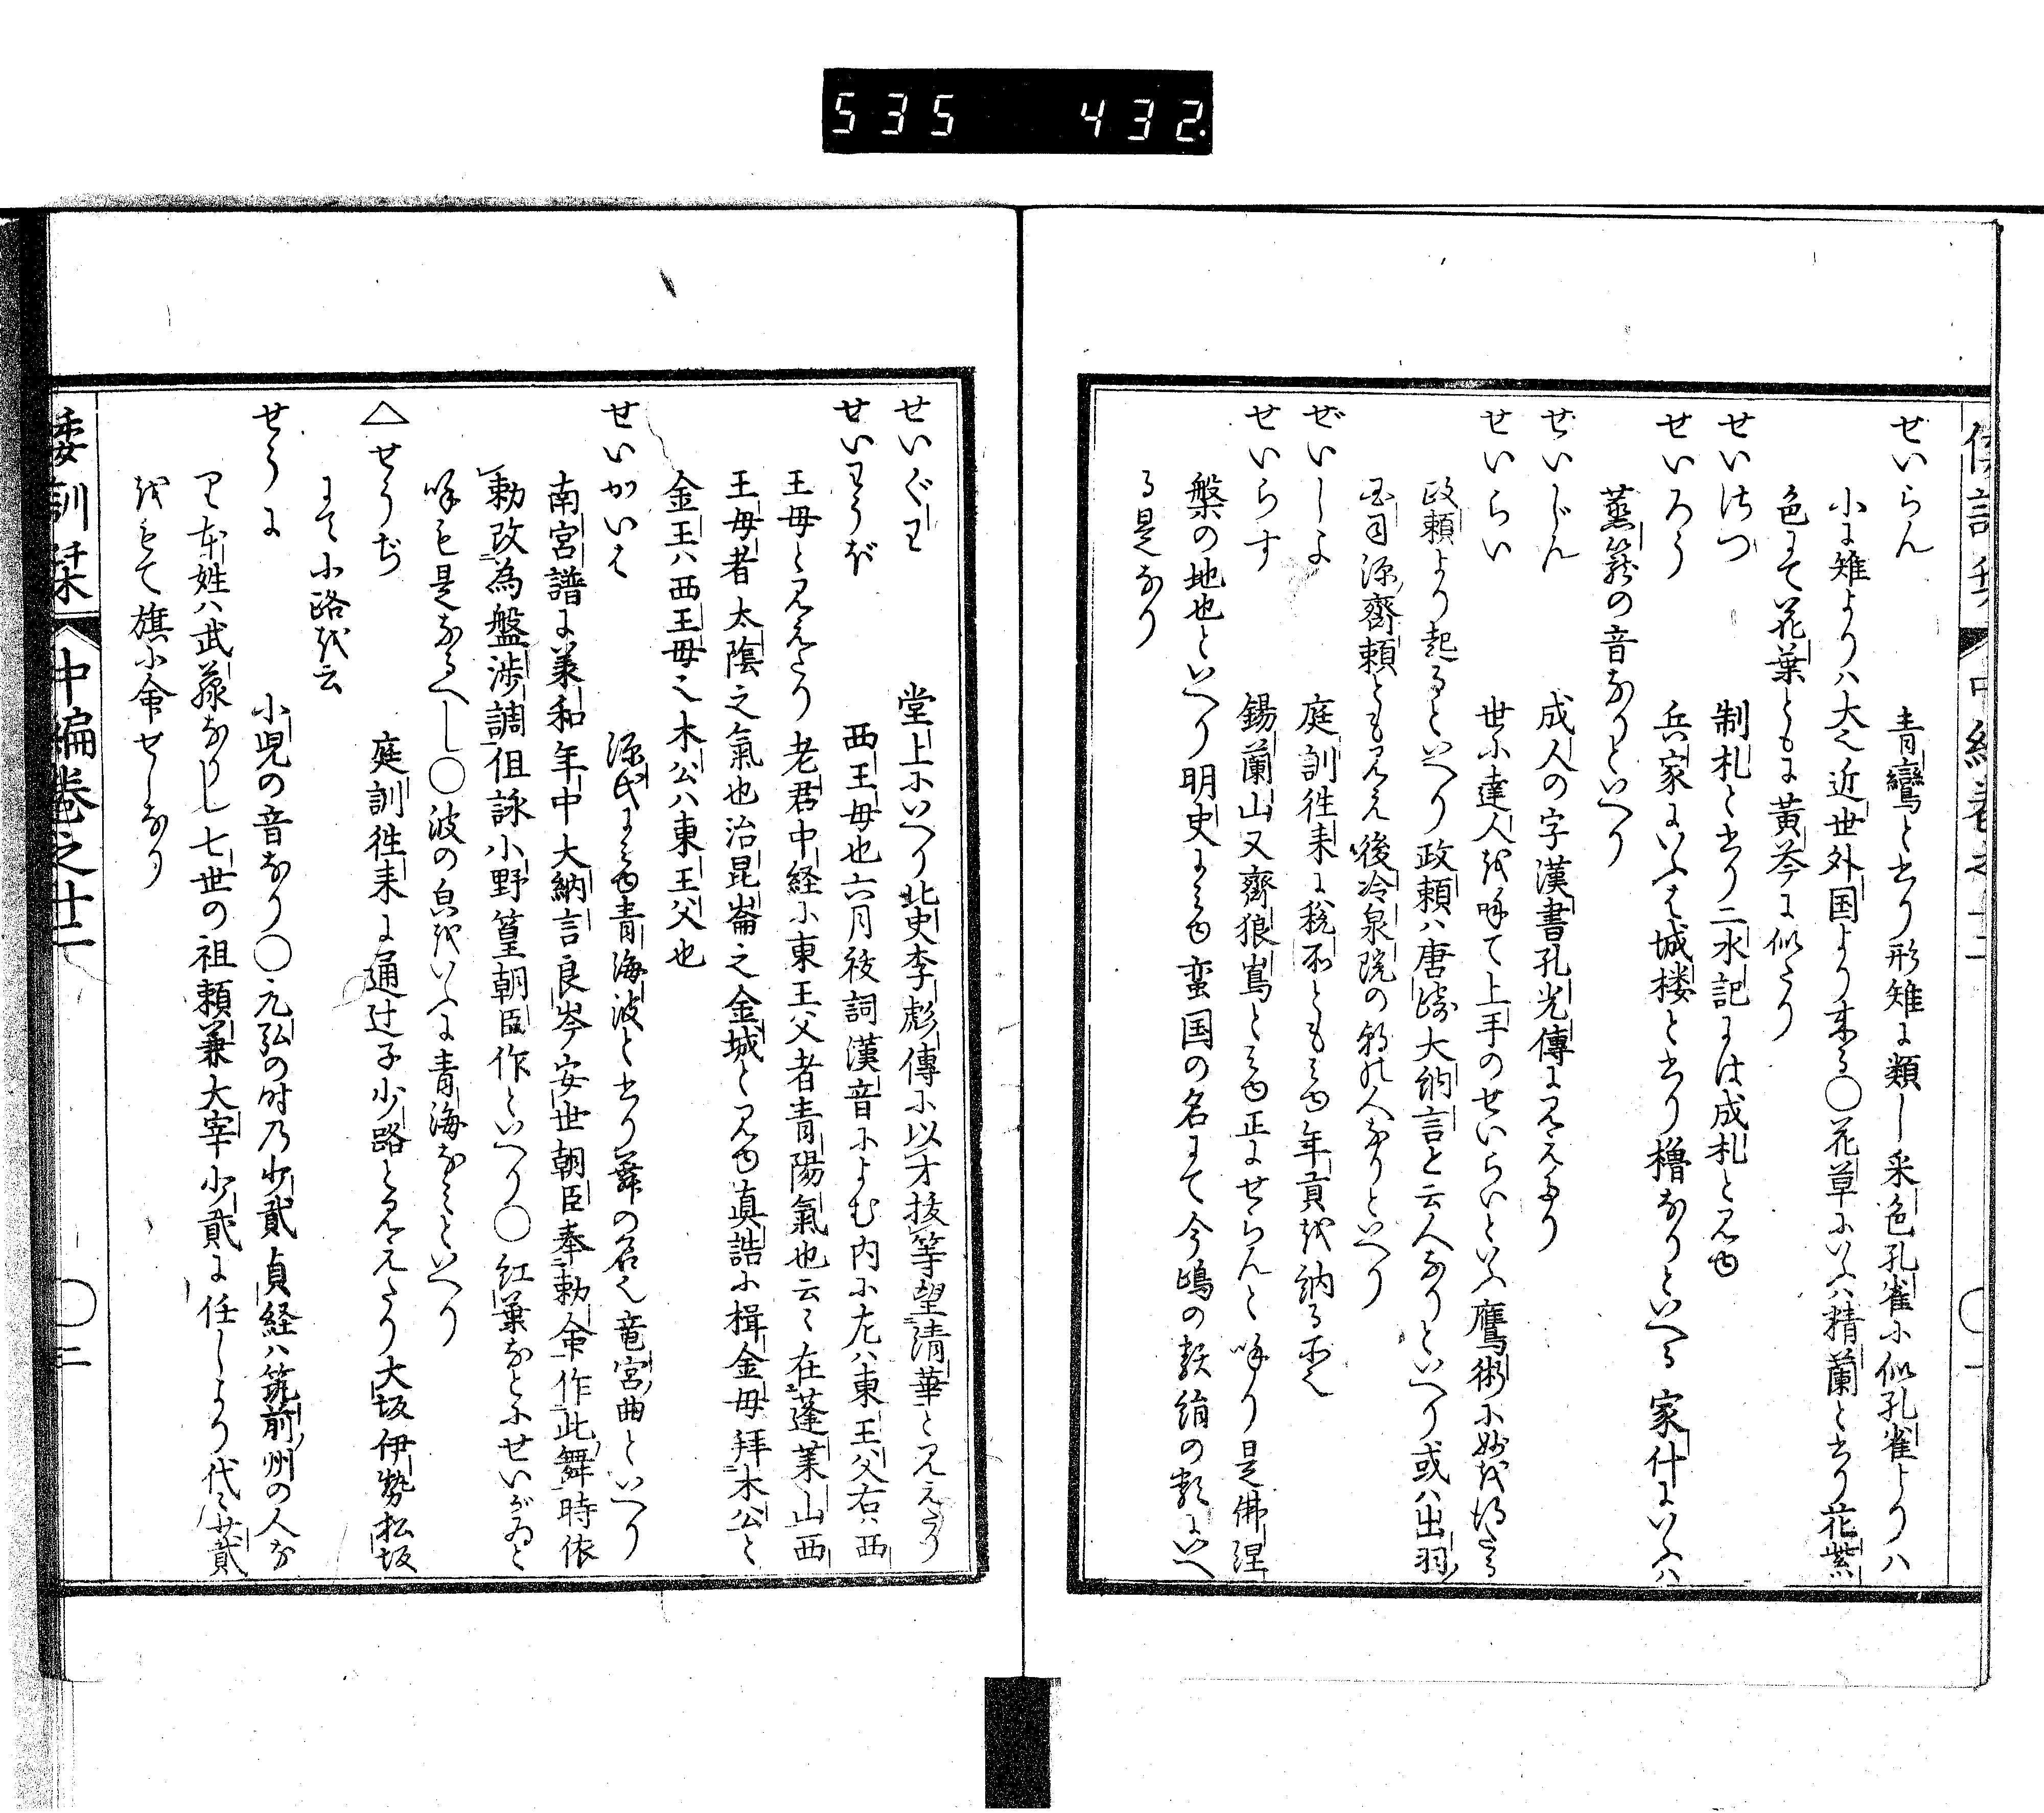 535 432
せいらん 青鸞と書り形雉に類し采色孔雀に似孔雀よりハ
小に雉よりハ大也近世外国より来る〇花草にいふハ精蘭と書り花紫
色にて花葉ともに黄芩に似たり
せいさつ 制札と書り二水記には成札と見ゆ
せいろう 兵家にいふは城楼と書り櫓なりといへる家什にいふハ
蒸籠の音なりといへり
せいじん 成人の字漢書孔光傳に見えたり
せいらい 世に達人を呼て上手のせいらいといふ鷹術に妙を得たる
政頼より起るといへり政頼ハ唐崎大納言と云人なりといへり或ハ出羽
国司源齊頼とも見え後冷泉院の朝の人なりといへり
ぜいしよ 庭訓徃来に税所とも見ゆ年貢を納る所也
せいらす 錫蘭山又齊狼嶌と見ゆ正にせらんと呼り是佛涅
槃の地也といへり明史に見ゆ蛮国の名にて今嶋の類絹の類にいへ
る是なり
せいぐわ 堂上にいへり北史李彪傳に以才抜等望清華と見えたり
せいわうぼ 西王母也六月祓詞漢音によむ内に左ハ東王父右ハ西
王母と見えたり老君中経に東王父者青陽氣也云々在蓬莱山西
王母者太陰之氣也治昆崙之金城と見ゆ真誥に揖金母拜木公と
金王ハ西王母也木公ハ東王父也
せいがいは 源氏に見ゆ青海波と書り舞の名也竜宮曲といへり
南宮譜に羕和年中大納言良岑安世朝臣奉勅命作此舞時依
勅改為盤渉調但詠小野篁朝臣作といへり〇紅葉などにせいがゐと
呼も是なるへし〇波の皃をいふに青海なミといへり
△せうぢ 庭訓徃来に通辻子少路と見えたり大坂伊勢松坂
にて小路を云
せうに 小児の音なり〇元弘の時乃少貳貞経ハ筑前州の人な
り本姓ハ武藤なりし七世の祖頼兼大宰少貳に任しより代々少貳
をもて旗に命せしなり
倭訓栞 中編巻之廿二 〇二